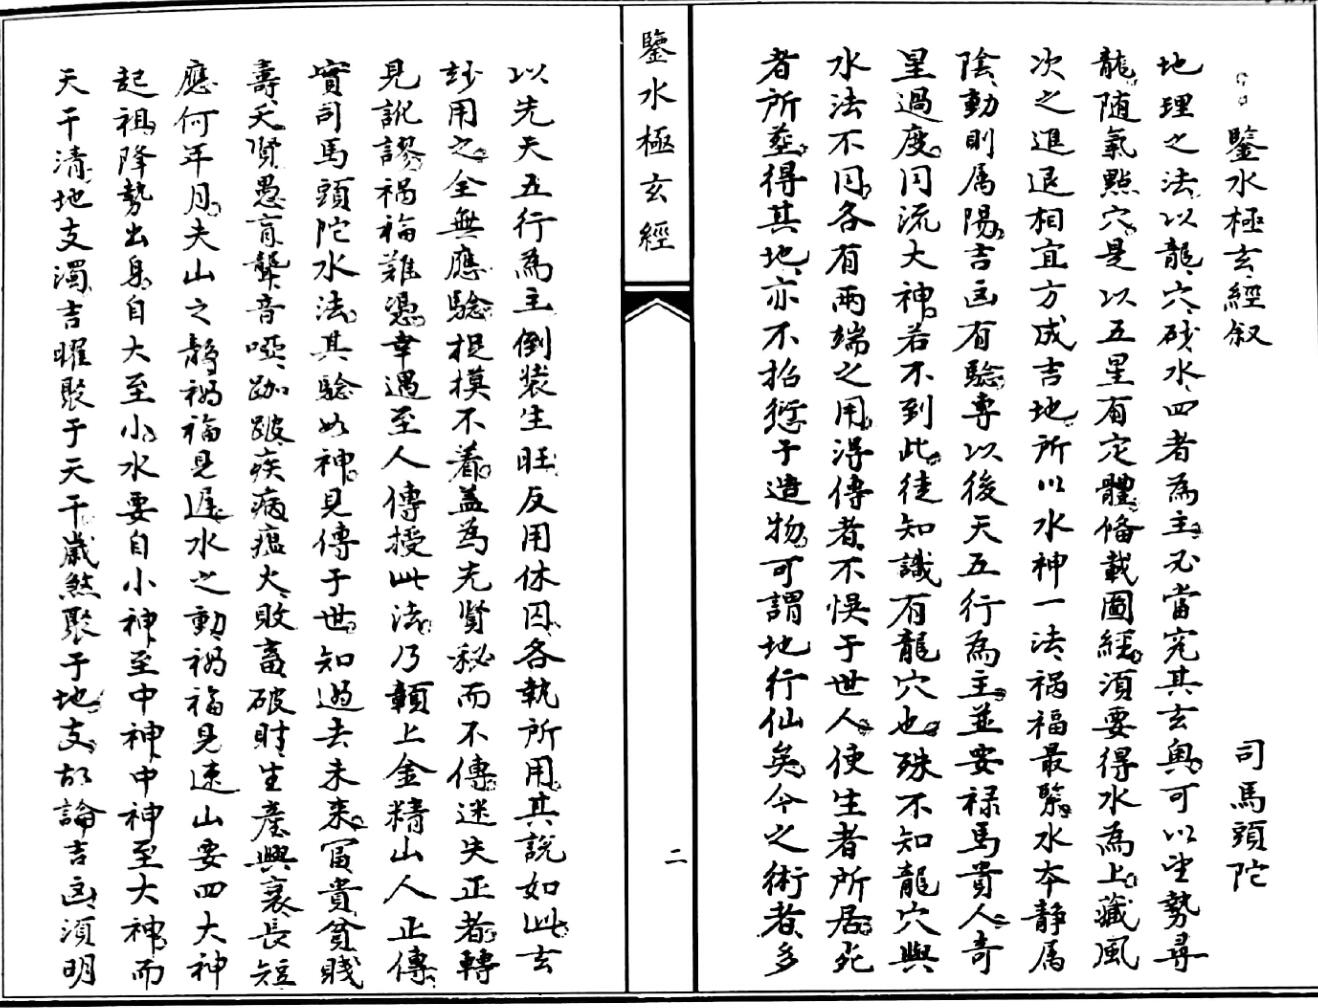 鑒水極玄經叙
司馬頭陀
地理之法以龍穴砂水四者為主必當究其玄奥可以望勢尋
龍随氣點穴是以五星有定體俻載圖經湏要得水為上藏風
次之進退相宜方成吉地所以水神一法禍福最緊水夲静属
陰動則属陽吉凶有驗専以後天五行為主並要禄馬貴人奇
星過度同流大神若不到此徒知識有龍穴也殊不知龍穴與
水法不同各有兩端之用淂傳者不悞于世人使生者所居死
者所塟得其地亦不招愆于造物可謂地行仙矣今之術者多
鑒水極玄經
二
以先天五行為主倒装生旺反用休囚各執所用其說如此玄
玅用之全無應驗捉摸不着盖為先贤秘而不傳迷失正者轉
見訛謬禍福難憑幸遇至人傳授此法乃贑上金精山人正傳
實司馬頭陀水法其驗如神見傳于世知過去未来冨貴貧賤
壽夭賢愚盲聾音啞跏跛疾病瘟火敗畜破财生產興衰長短
應何年月夫山之静禍福見遲水之動禍福見速山要四大神
起祖降勢出身自大至小水要自小神至中神中神至大神而
天干清地支濁吉曜聚于天干歲煞聚于地支故論吉凶湏明